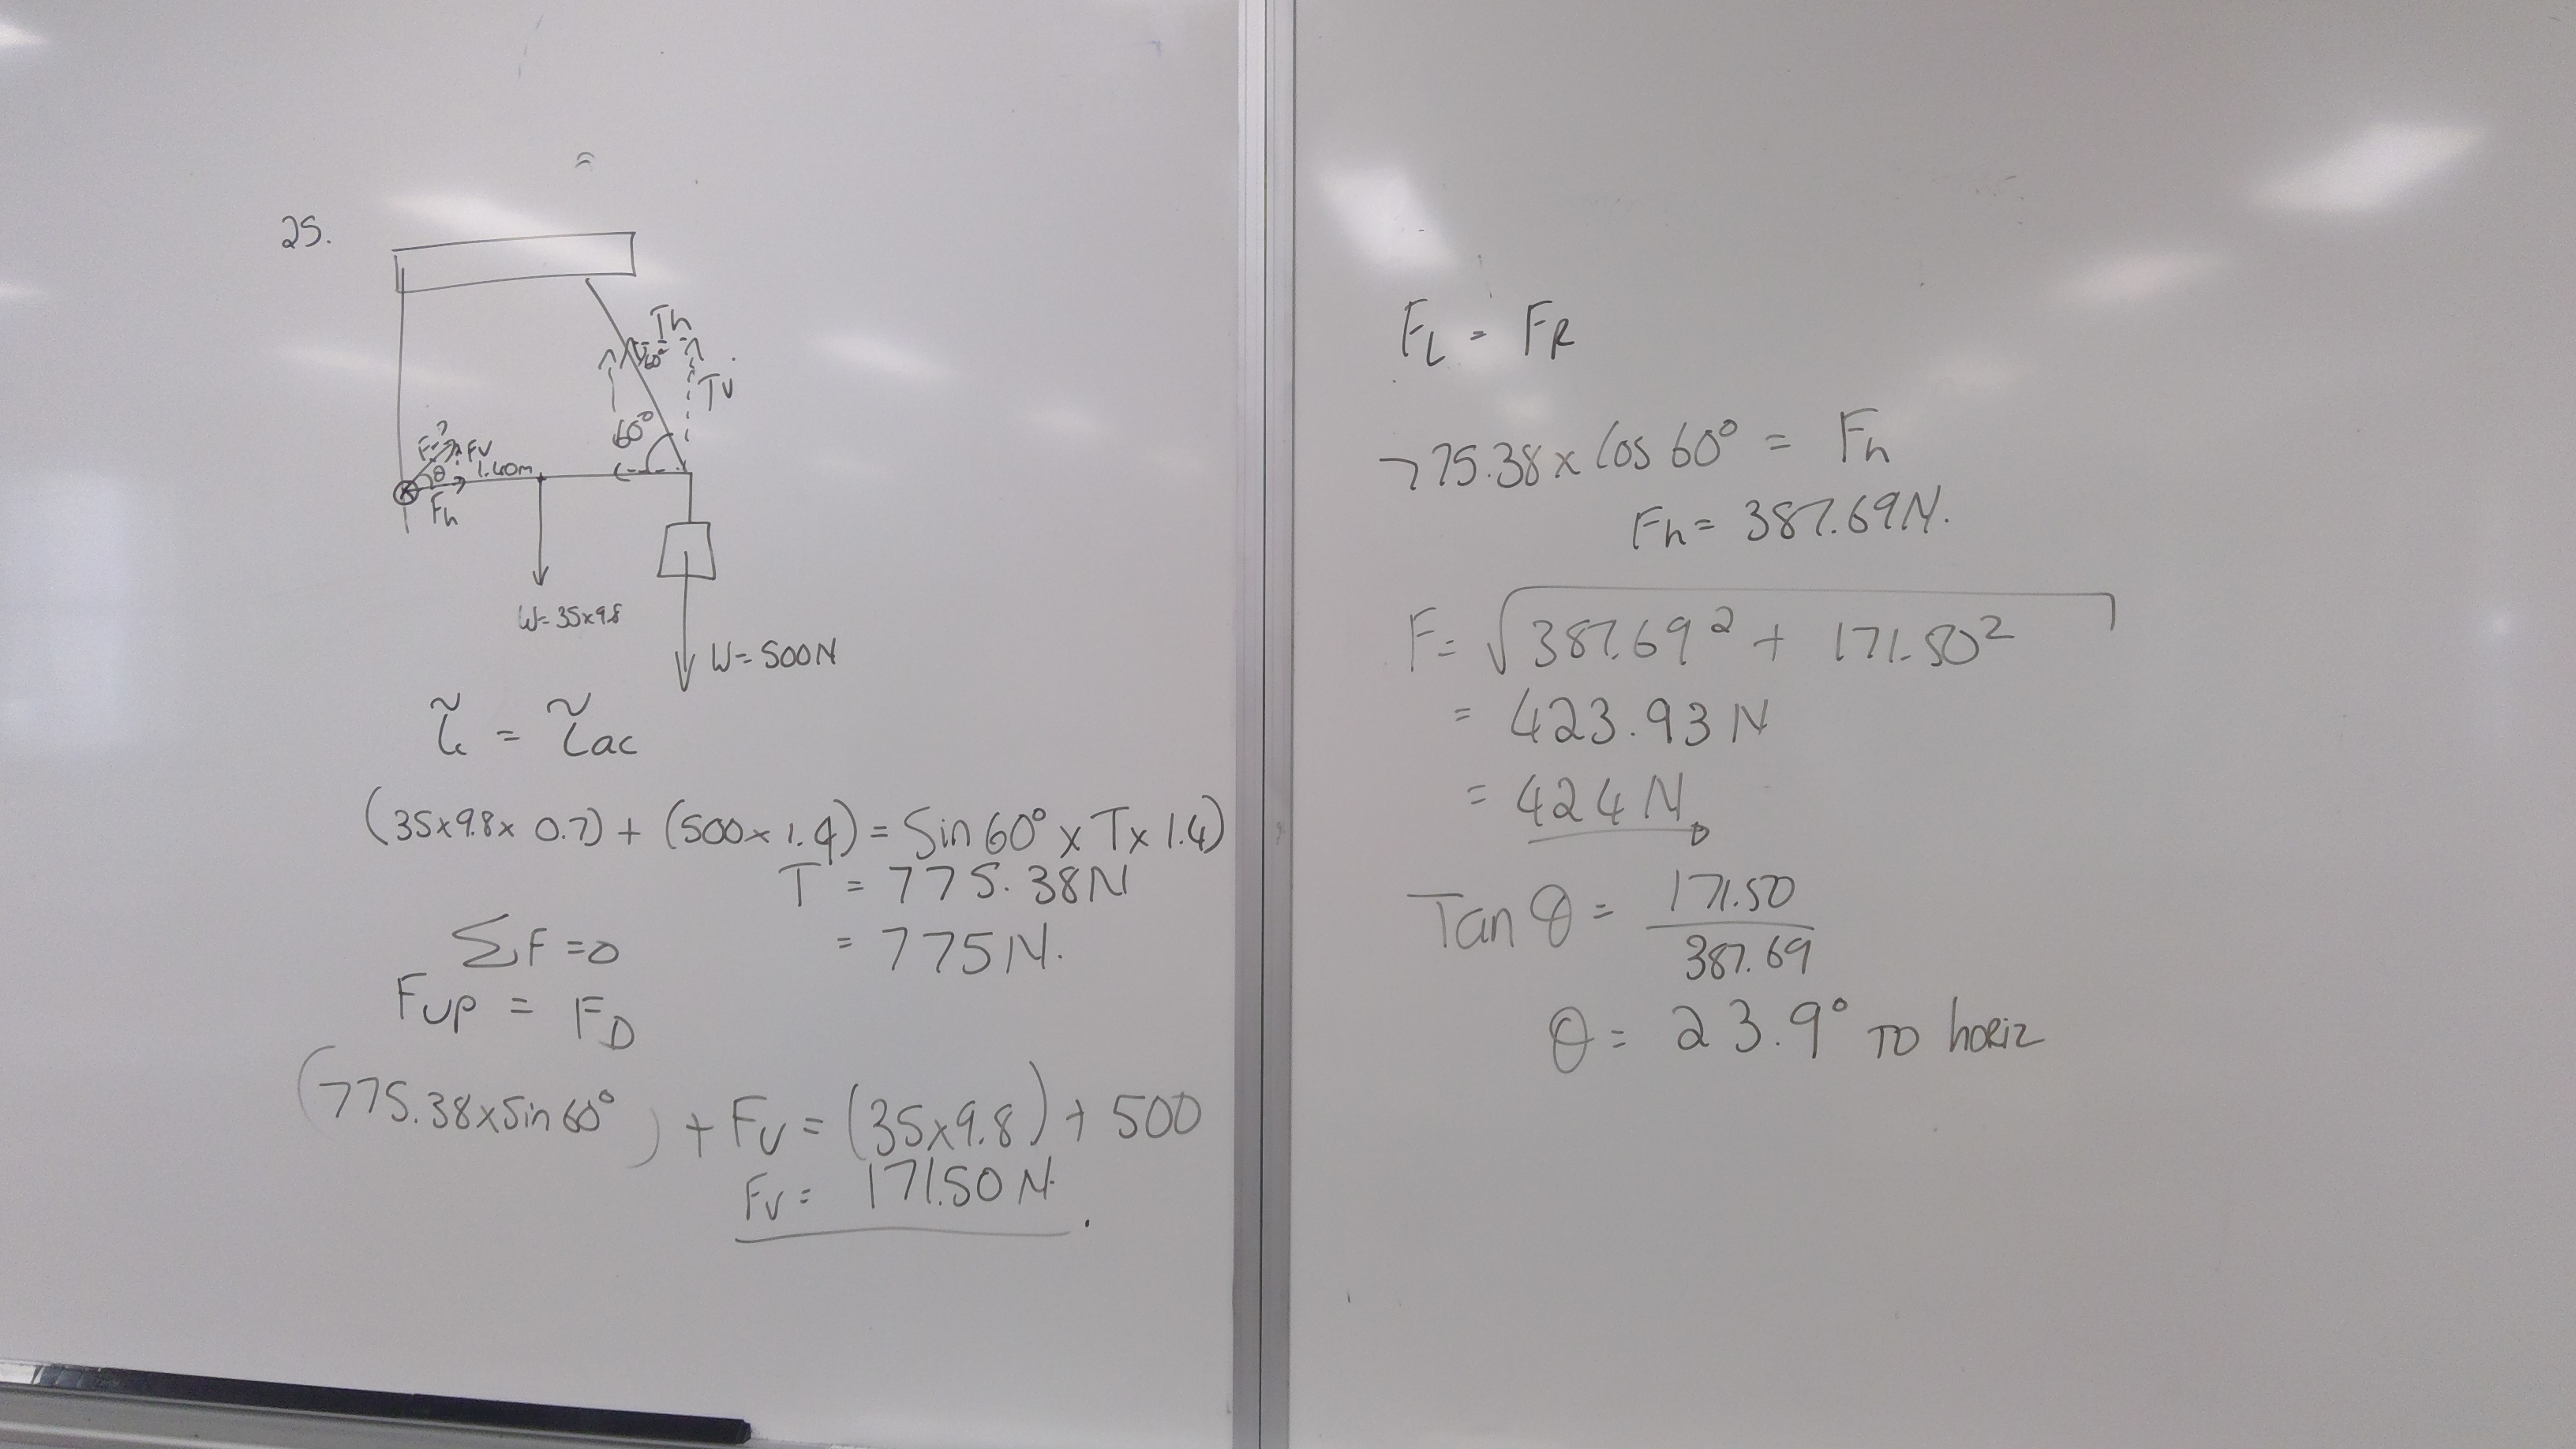 25.
Th
60°
Tv
60°
F=?
Fv
θ
1.40m
Fh
W=35x9.8
W=500N
τc = τac
(35x9.8x 0.7) + (500x 1.4) = Sin60° x Tx 1.4)
T = 775.38N
= 775N.
ΣF =0
Fup = FD
(775.38xSin60°) + Fv = (35x9.8) + 500
Fv = 171.50N.
FL = FR
775.38x Cos60° = Fh
Fh= 387.69N.
F= √387.69² + 171.50²
= 423.93N
= 424N
Tan θ = 171.50/387.69
θ = 23.9° TO horiz